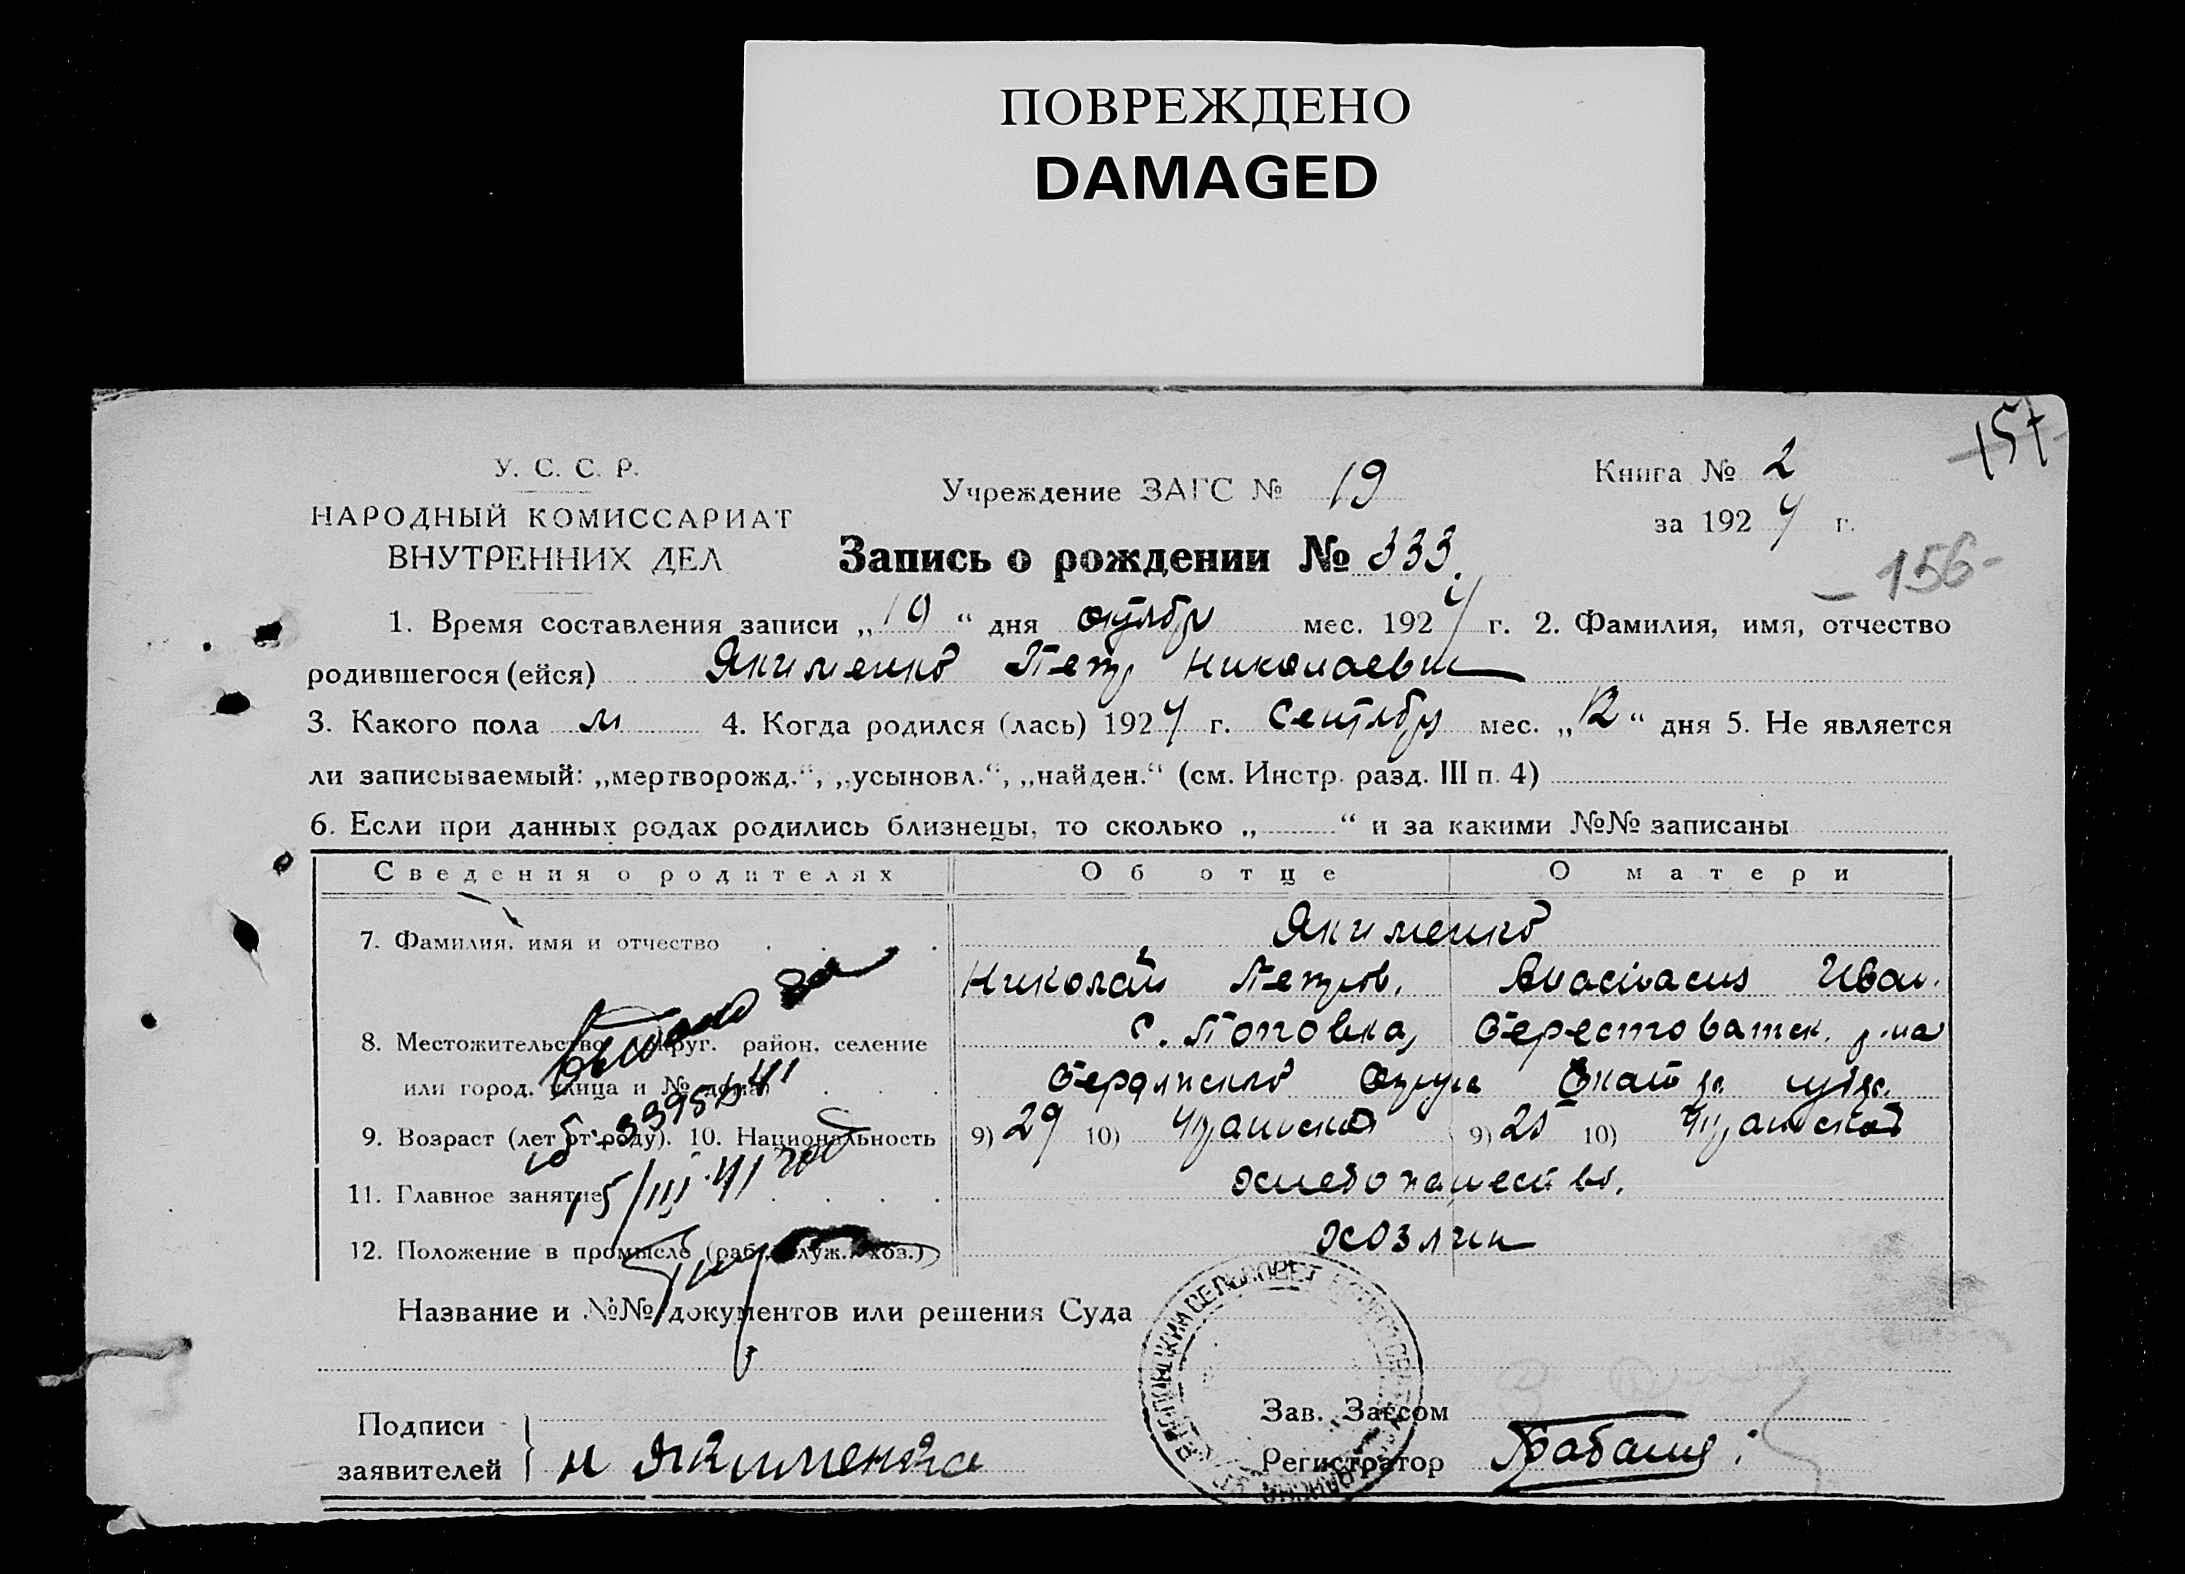 ПОВРЕЖДЕНО
DAMAGED
157
У. С. С. Р.
НАРОДНЫЙ КОМИССАРИАТ
ВНУТРЕННИХ ДЕЛ
Учреждение ЗАГС № 19
Книга № 2
за 1924 г.
Запись о рождении № 333.
156-
1. Время составления записи „10“ дня октябр мес. 1924 г. 2. Фамилия, имя, отчество
родившегося (ейся) Якименко Петр Николаевич
3. Какого пола м 4. Когда родился (лась) 1924 г. Сентябр мес. „12“ дня 5. Не является
ли записываемый: „мертворожд.“, „усыновл.“, „найден.“ (см. Инстр. разд. III п. 4)
6. Если при данных родах родились близнецы, то сколько „ “ и за какими №№ записаны
Сведения о родителях Об отце О матери
7. Фамилия, имя и отчество Якименко
Николай Петров. Анастасия Иван.
8. Местожительство округ. район, селение с. Поповка, Берестоватск. р-на
или город, улица и № дома Бердянского Округа Екат. губ.
9. Возраст (лет от роду). 10. Национальность 9) 29 10) 9) 25 10)
11. Главное занятие хлебопашество.
12. Положение в промысле (раб., служ., хоз.) хозяин
Выдано за
15/III 41 год
Название и №№ документов или решения Суда
Подписи
заявителей Н Якименко
Зав. Загсом
Регистратор